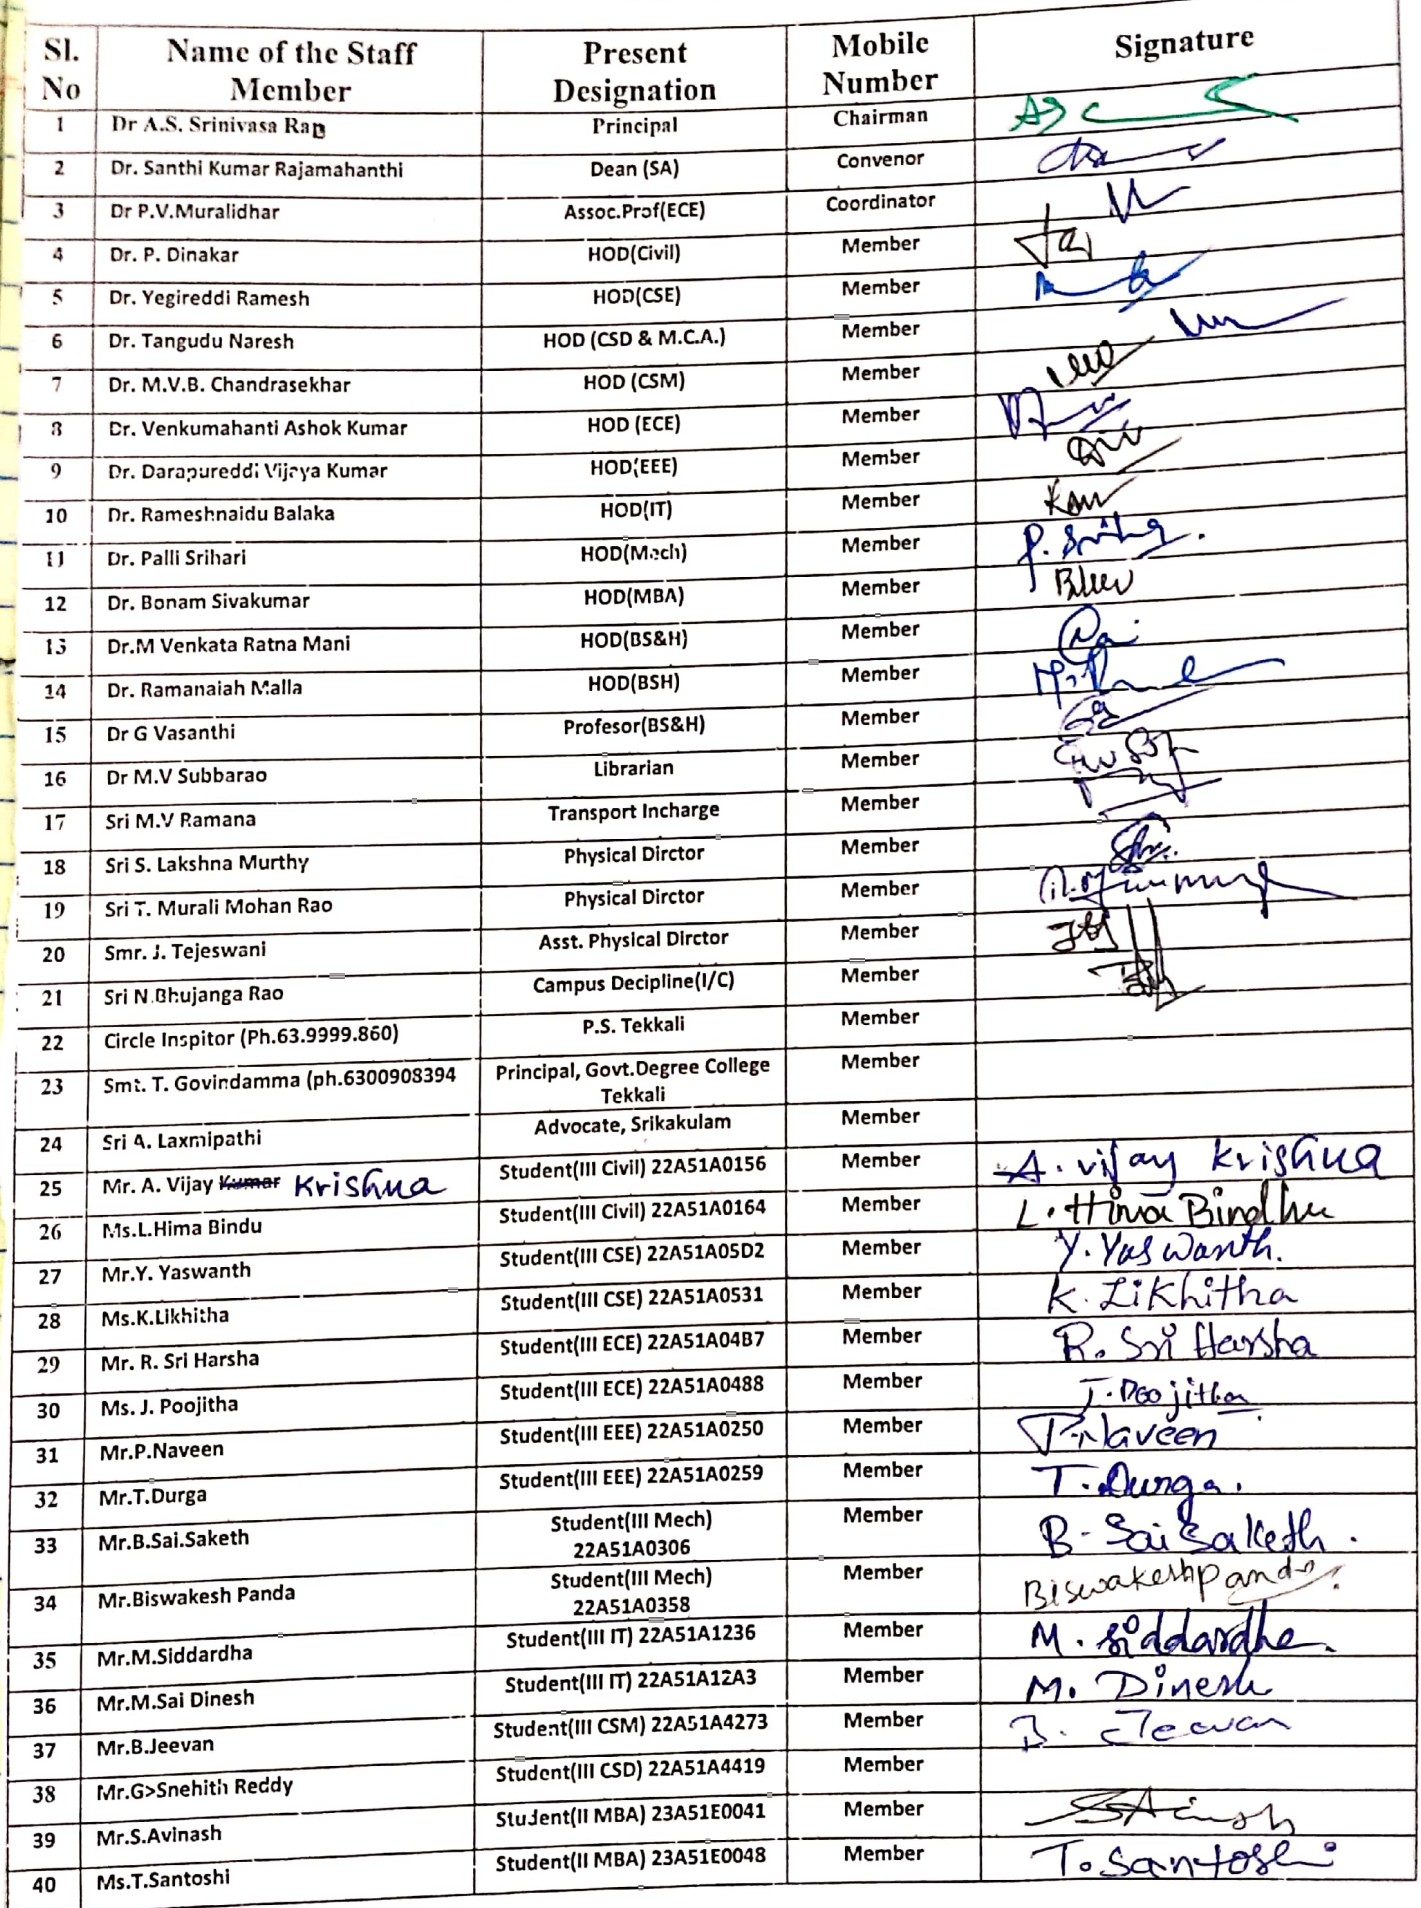 Sl. No Name of the Staff Member Present Designation Mobile Number Signature
1 Dr A.S. Srinivasa Rao Principal Chairman
2 Dr. Santhi Kumar Rajamahanthi Dean (SA) Convenor
3 Dr P.V.Muralidhar Assoc.Prof(ECE) Coordinator
4 Dr. P. Dinakar HOD(Civil) Member
5 Dr. Yegireddi Ramesh HOD(CSE) Member
6 Dr. Tangudu Naresh HOD (CSD & M.C.A.) Member
7 Dr. M.V.B. Chandrasekhar HOD (CSM) Member
8 Dr. Venkumahanti Ashok Kumar HOD (ECE) Member
9 Dr. Darapureddi Vijaya Kumar HOD(EEE) Member
10 Dr. Rameshnaidu Balaka HOD(IT) Member
11 Dr. Palli Srihari HOD(Mech) Member P. Srihari
12 Dr. Bonam Sivakumar HOD(MBA) Member
13 Dr.M Venkata Ratna Mani HOD(BS&H) Member
14 Dr. Ramanaiah Malla HOD(BSH) Member
15 Dr G Vasanthi Profesor(BS&H) Member
16 Dr M.V Subbarao Librarian Member
17 Sri M.V Ramana Transport Incharge Member
18 Sri S. Lakshna Murthy Physical Dirctor Member
19 Sri T. Murali Mohan Rao Physical Dirctor Member
20 Smr. J. Tejeswani Asst. Physical Dirctor Member
21 Sri N.Bhujanga Rao Campus Decipline(I/C) Member
22 Circle Inspitor (Ph.63.9999.860) P.S. Tekkali Member
23 Smt. T. Govindamma (ph.6300908394 Principal, Govt.Degree College Tekkali Member
24 Sri A. Laxmipathi Advocate, Srikakulam Member
25 Mr. A. Vijay Kumar Krishna Student(III Civil) 22A51A0156 Member A. vijay Krishna
26 Ms.L.Hima Bindu Student(III Civil) 22A51A0164 Member L. Hima Bindhu
27 Mr.Y. Yaswanth Student(III CSE) 22A51A05D2 Member Y. Yaswanth.
28 Ms.K.Likhitha Student(III CSE) 22A51A0531 Member K. Likhitha
29 Mr. R. Sri Harsha Student(III ECE) 22A51A04B7 Member R. Sri Harsha
30 Ms. J. Poojitha Student(III ECE) 22A51A0488 Member J. Poojitha
31 Mr.P.Naveen Student(III EEE) 22A51A0250 Member P. Naveen
32 Mr.T.Durga Student(III EEE) 22A51A0259 Member T. Durga.
33 Mr.B.Sai.Saketh Student(III Mech) 22A51A0306 Member B. Sai Saketh.
34 Mr.Biswakesh Panda Student(III Mech) 22A51A0358 Member Biswakesh Panda
35 Mr.M.Siddardha Student(III IT) 22A51A1236 Member M. Siddardha
36 Mr.M.Sai Dinesh Student(III IT) 22A51A12A3 Member M. Dinesh
37 Mr.B.Jeevan Student(III CSM) 22A51A4273 Member B. Jeevan
38 Mr.G>Snehith Reddy Student(III CSD) 22A51A4419 Member
39 Mr.S.Avinash Student(II MBA) 23A51E0041 Member
40 Ms.T.Santoshi Student(II MBA) 23A51E0048 Member T. Santoshi